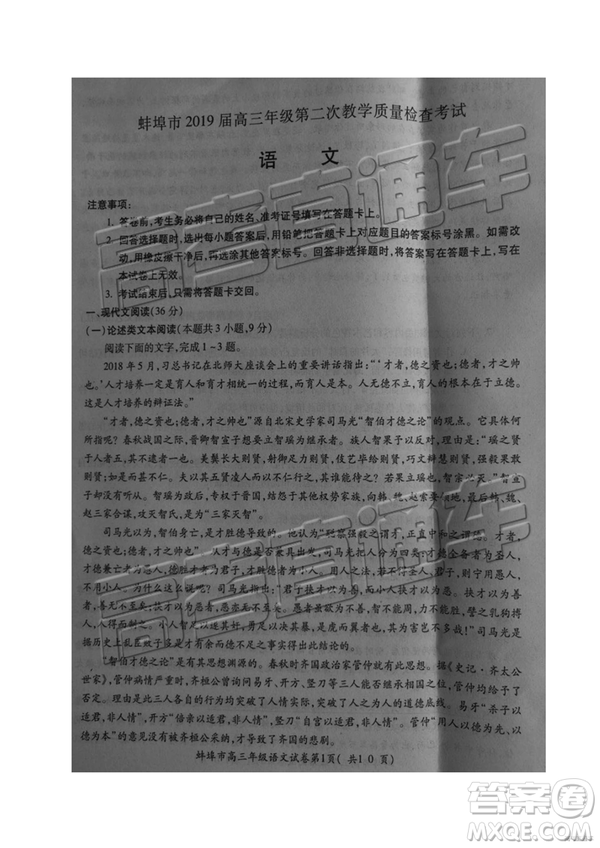 蚌埠市2019届高三年级第二次教学质量检查考试
语 文
注意事项:
1. 答卷前,考生务必将自己的姓名、准考证号填写在答题卡上。
2. 回答选择题时,选出每小题答案后,用铅笔把答题卡上对应题目的答案标号涂黑。如需改
动,用橡皮擦干净后,再选涂其他答案标号。回答非选择题时,将答案写在答题卡上。写在
本试卷上无效。
3. 考试结束后,只需将答题卡交回。
一、现代文阅读(36分)
(一)论述类文本阅读(本题共3小题,9分)
阅读下面的文字,完成1-3题。
2018年5月,习总书记在北师大座谈会上的重要讲话指出:“‘才者,德之资也;德者,才之帅
也。’人才培养一定是育人和育才相统一的过程,而育人是本。人无德不立,育人的根本在于立德。
这是人才培养的辩证法。”
“才者,德之资也;德者,才之帅也”源自北宋史学家司马光“智伯才德之论”的观点。它们何
所指呢?春秋战国之际,晋卿智宣子想要立智瑶为继承者。族人智果予以反对,理由是:“瑶之贤
于人者五,其不逮者一也。美鬓长大则贤,射御足力则贤,伎艺毕给则贤,巧文辩慧则贤,强毅果敢
则贤;如是而甚不仁。夫以其五贤凌人而以不仁行之,其谁能待之?若果立瑶也,智宗必灭。”智宣
子未能听从。智瑶为政后,恃才傲物,向韩康子、魏桓子和赵襄子
赵三家合谋,攻灭智氏,是为“三家灭智”。
司马光以为,智伯身亡是才胜德导致的。他认为,“聪察强毅之谓才,正直中和之谓德。才者,
德之资也;德者,才之帅也”。以才与德是否兼具为标准,司马光把人分为四类:才德兼备为圣人,
才德兼亡为愚人,德胜才为君子,才胜德为小人。选拔人才时,若不能得到圣人、君子,则宁用愚人,
不用小人。为什么这么说呢?司马光指出:“君子挟才以为善,小人挟才以为恶。挟才以为善者,善
无不至矣;挟才以为恶者,恶亦无不至矣。愚者虽欲为不善,智不能周,力不能胜,譬之乳狗搏
人,人得而制之。小人智足以遂其奸,勇足以决其暴,是虎而翼者也,其为害岂不多哉!”司马光是
考察历史上乱臣贼子败家灭国的事例之后,得出此结论的。
“智伯才德之论”的思想渊源的。春秋时齐国政治家管仲就有此思想。据《史记·齐太公
世家》,管仲病情严重时,齐桓公问他谁可为相,并列举了易牙、开方、竖刀三人。管仲以“杀子以
适君,非人情”,开方“倍亲以适君,非人情”,竖刀“自宫以适君,非人情”,
本”的意见没有被齐桓公采纳,从而导致了齐国的悲剧。
蚌埠市高三年级语文试卷第1页(共10页)
高考直通车
高考直通车
高考直通车
答案圈
MXQE.COM